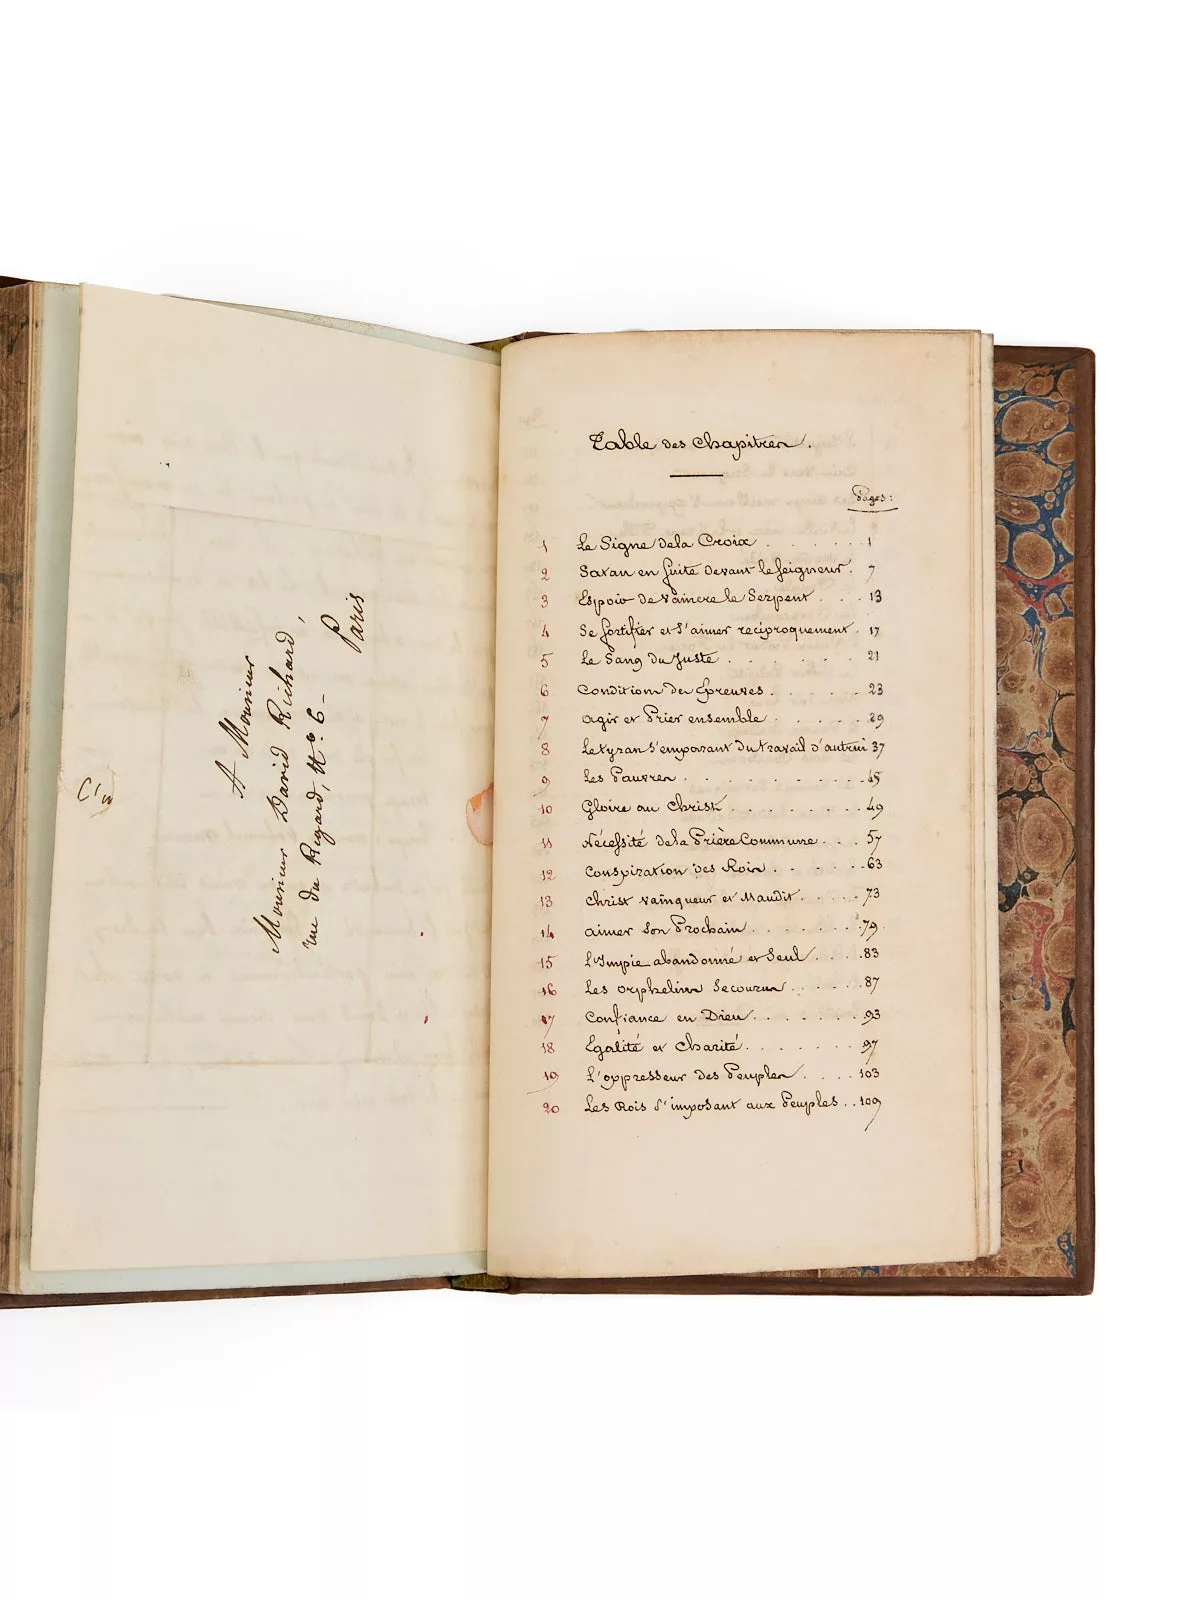 A Monsieur
Monsieur David Richard,
rue du Regard, N.º 6-
Paris
Table des Chapitres.
Pages:
1 Le Signe de la Croix . . . . . . 1
2 Satan en fuite devant le Seigneur. 7
3 Espoir de Vaincre le Serpent . . . 13
4 Se fortifier et S'aimer reciproquement . 17
5 Le Sang du Juste . . . . . . . 21
6 Condition des Epreuves . . . . . 23
7 Agir et Prier ensemble . . . . . 29
8 Le tyran S'emparant du travail d'autrui 37
9 Les Pauvres . . . . . . . . . 45
10 Gloire au Christ . . . . . . . 49
11 Nécessité de la Prière Commune . . . 57
12 Conspiration des Rois . . . . . . 63
13 Christ vainqueur et Maudit . . . . . 73
14 Aimer Son Prochain . . . . . . . 79.
15 L'Impie abandonné et Seul . . . . 83
16 Les orphelins Secourus . . . . . 87
17 Confiance en Dieu . . . . . . . 93
18 Egalité et Charité . . . . . . . 97
19 L'oppresseur des Peuples . . . . 103
20 Les Rois S'imposant aux Peuples . . 109